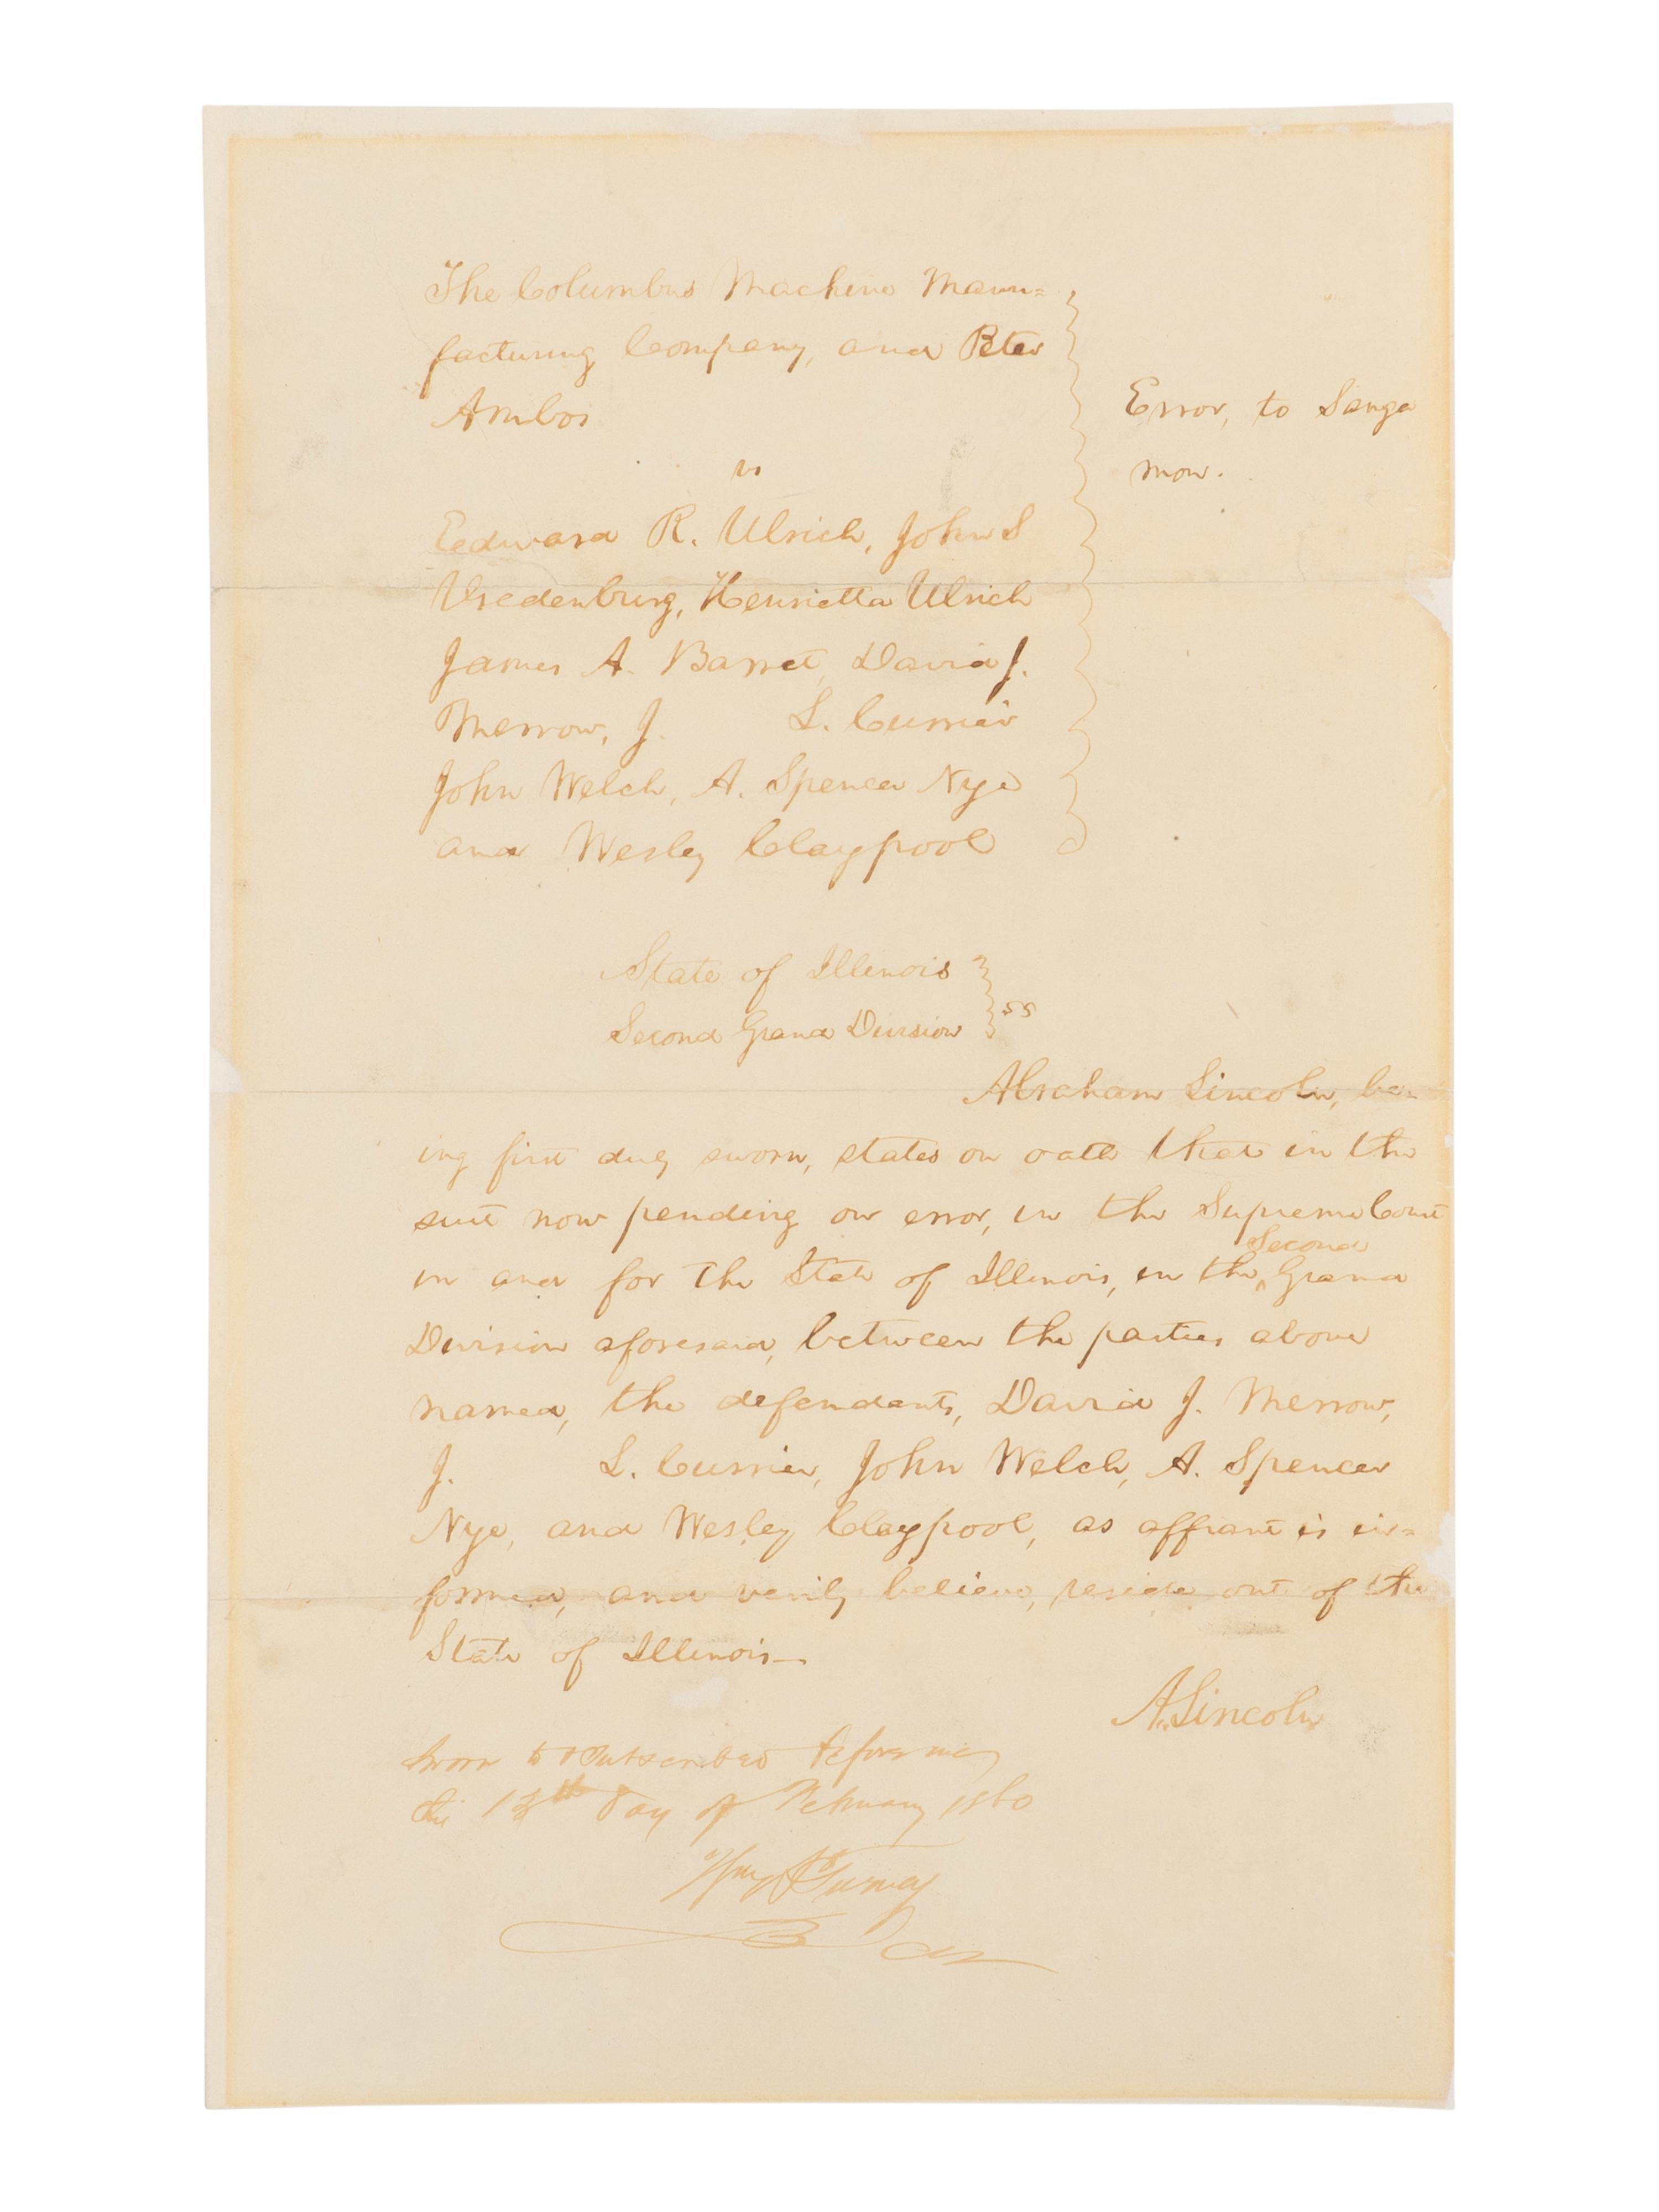 The Columbus Machine Manu=
facturing Company, and Peter
Ambos
vs
Edward R. Ulrich, John S
Vredenburg, Henrietta Ulrich
James A. Barret, David J.
Merrow, J. L. Currier
John Welch, A. Spencer Nye
and Wesley Claypool
Error, to Sanga
mon.
State of Illinois
Second Grand Division
ss
Abraham Lincoln, be-
ing first duly sworn, states on oath that in the
suit now pending on error, in the Supreme Court
Second
in and for the State of Illinois, in the ^ Grand
Division aforesaid, between the parties above
named, the defendants, David J. Merrow,
J. L. Currier, John Welch, A. Spencer
Nye, and Wesley Claypool, as affiant is in=
formed, and verily believe, reside out of the
State of Illinois—
A. Lincoln
Sworn to & subscribed before me
this 13th day of February 1860
Turney